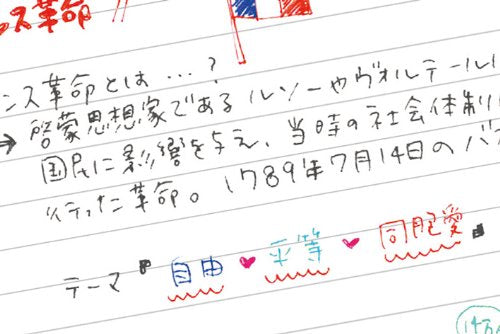 ス革命
ンス革命とは…？
→ 啓蒙思想家であるルソーやヴォルテール
国民に影響を与え、当時の社会体制
行った革命。1789年7月14日のバ
テーマ 自由 ♥ 平等 ♥ 同胞愛